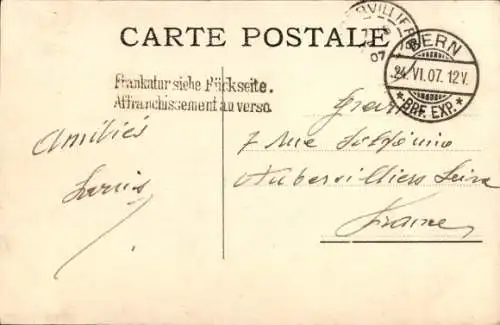 CARTE POSTALE
RVILLIER
07
BERN
24.VI.07.12V.
* BRF. EXP. *
Frankatur siehe Rückseite.
Affranchissement au verso.
Amitiés
Louis
7 Rue Solférino
Aubervilliers Seine
France